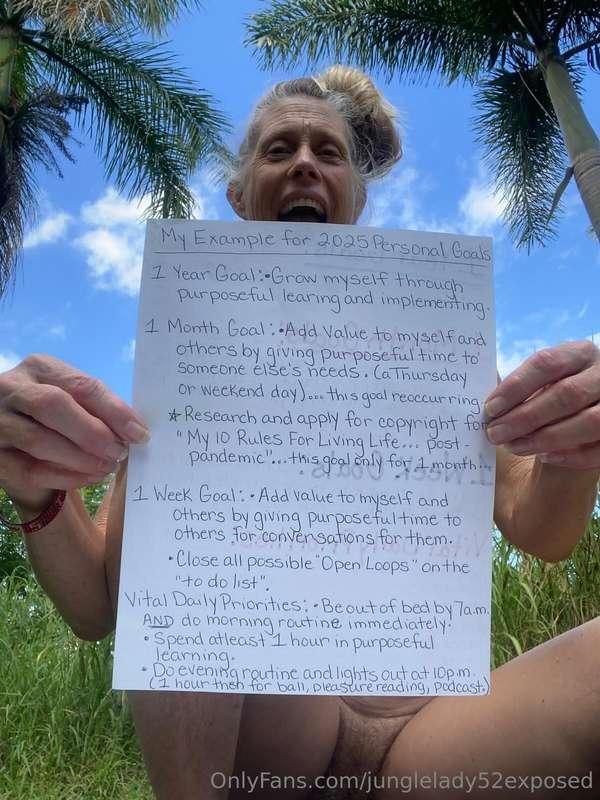 My Example for 2025 Personal Goals
1 Year Goal: • Grow myself through
purposeful learing and implementing.
1 Month Goal: • Add value to myself and
others by giving purposeful time to
someone else's needs. (a Thursday
or weekend day)... this goal reoccurring
* Research and apply for copyright for
"My 10 Rules For Living Life... post-
pandemic"... this goal only for 1 month...
1 Week Goal: • Add value to myself and
others by giving purposeful time to
others for conversations for them.
• Close all possible "Open Loops" on the
"to do list".
Vital Daily Priorities: • Be out of bed by 7a.m.
AND do morning routine immediately.
• Spend atleast 1 hour in purposeful
learning.
• Do evening routine and lights out at 10p.m.
(1 hour then for ball, pleasure reading, podcast.)
OnlyFans.com/junglelady52exposed